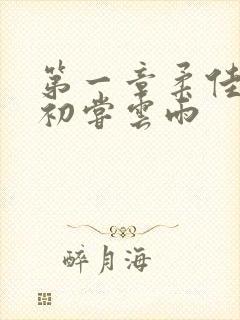 第一章柔佳
初尝雲雨
醉月海